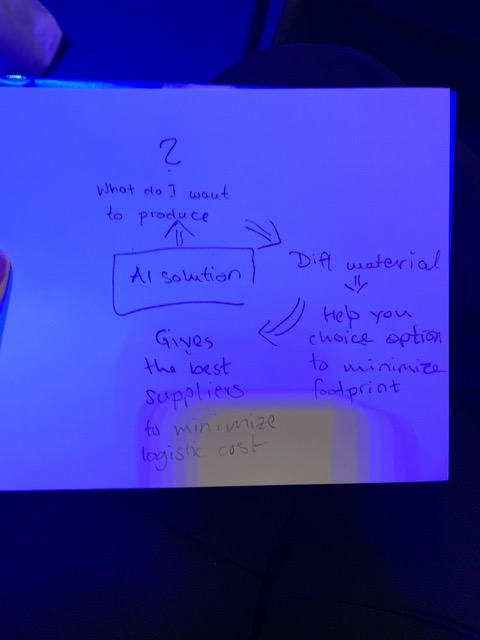 ?
What do I want
to produce
AI solution
Difft material
Help you
choice option
to minimize
footprint
Gives
the best
suppliers
to minimize
logistic cost